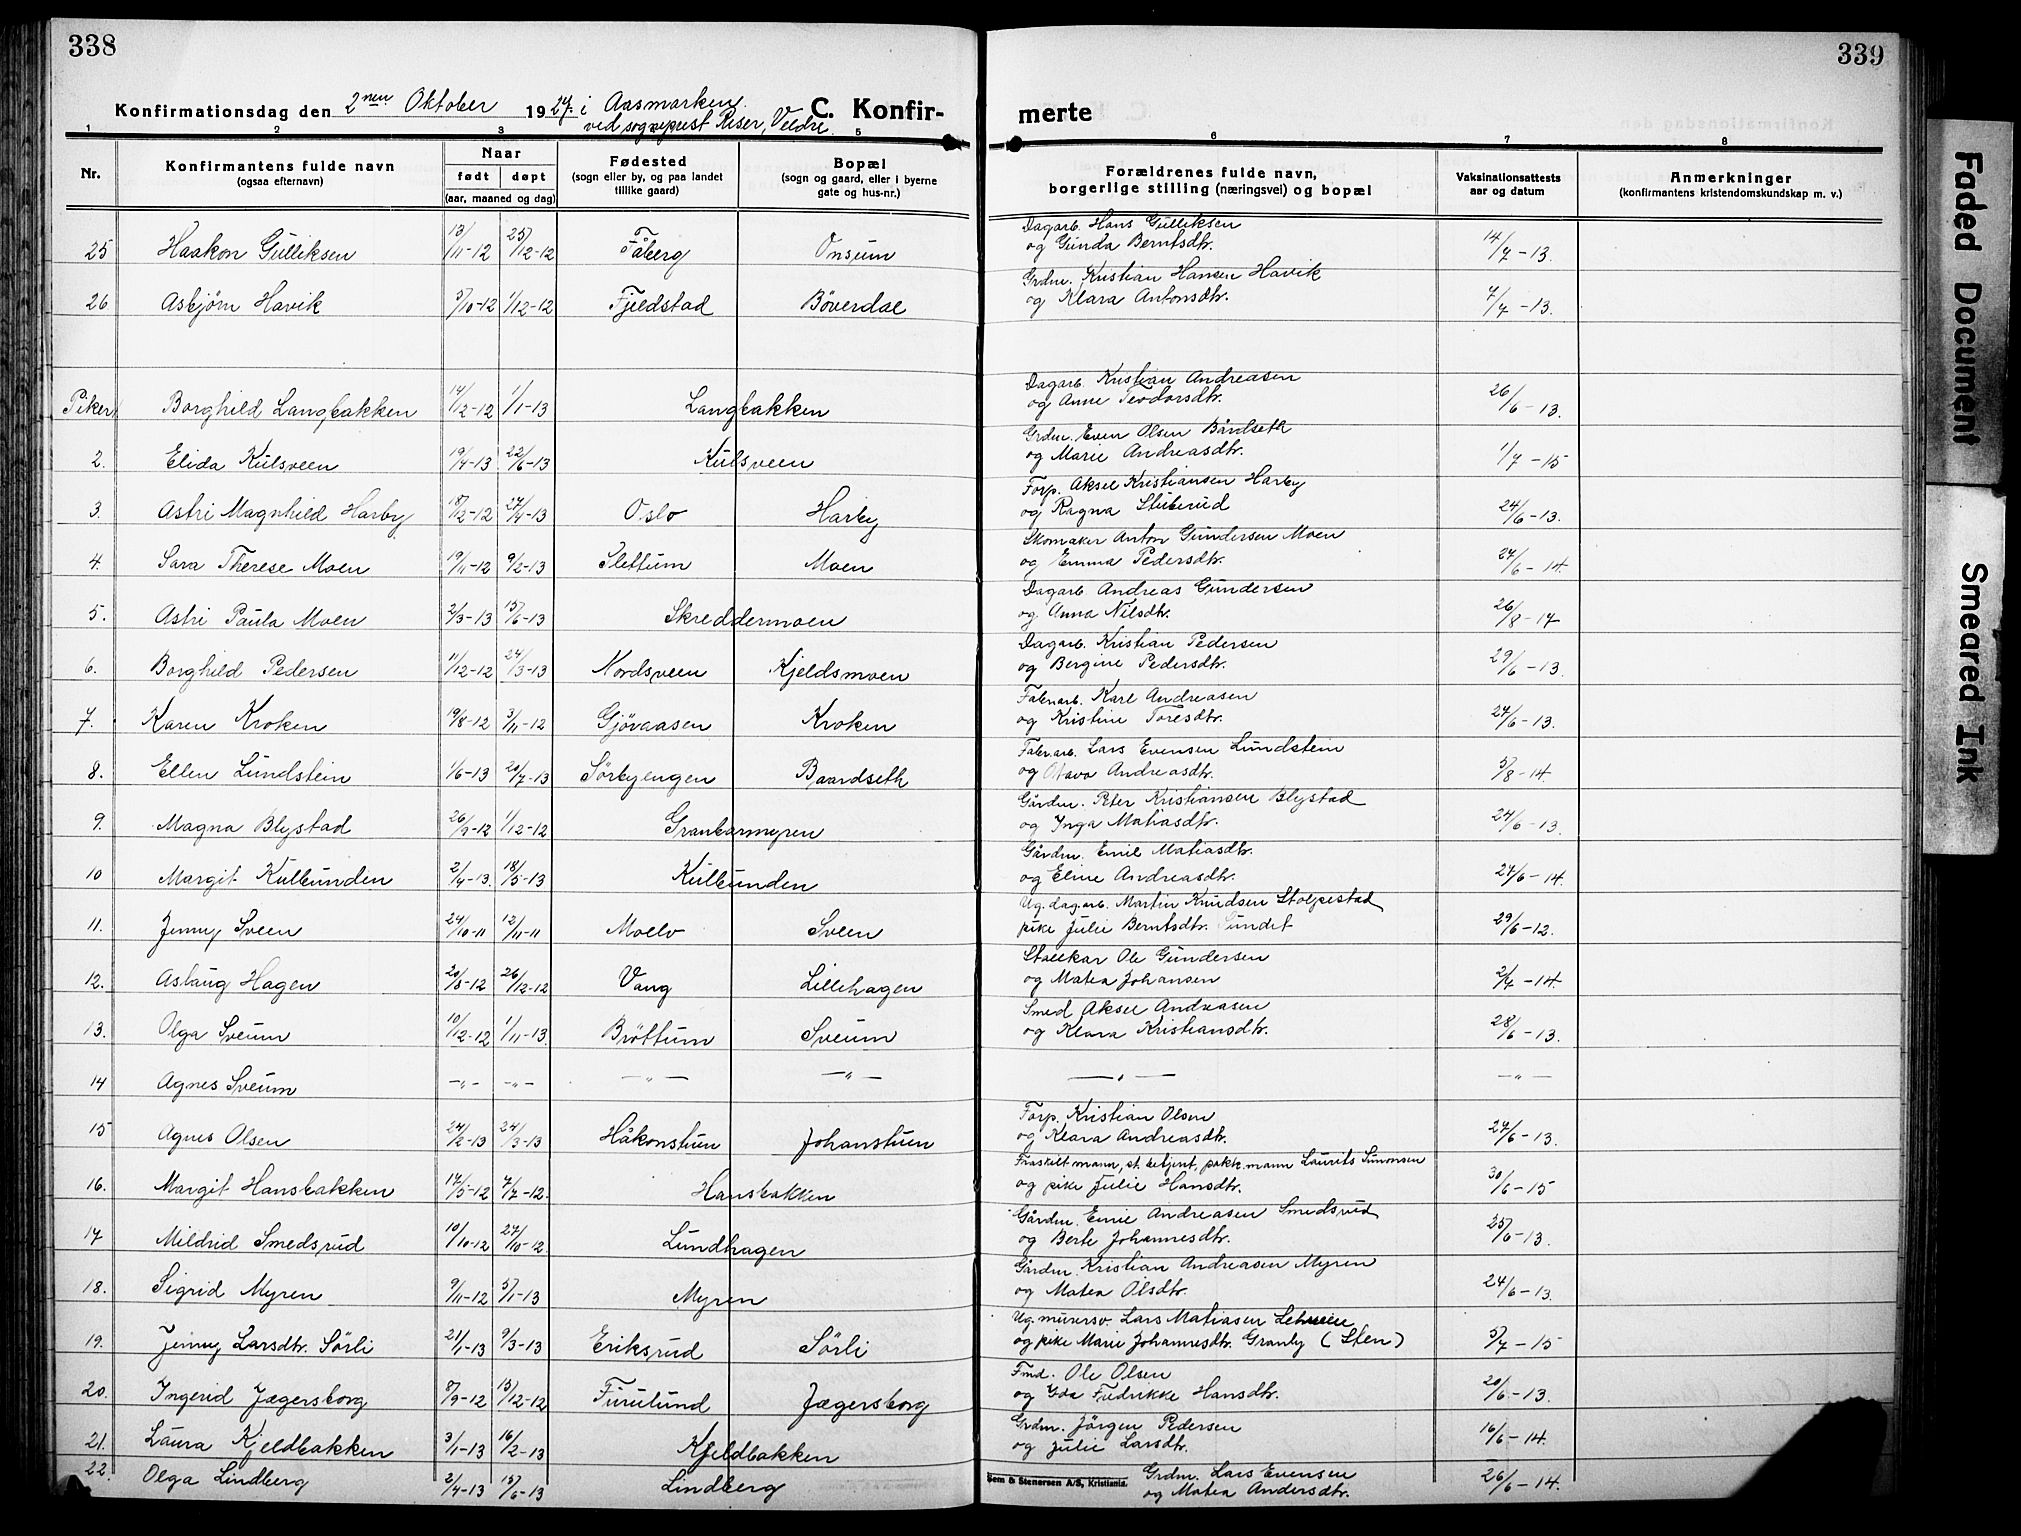 338
Konfirmationsdag den 2nen Oktober 1927. i Aasmarken. C. Konfir-
ved sogneprest Riser, Veldre
1 2 3 5
Nr. Konfirmantens fulde navn (ogsaa efternavn) Naar født døpt (aar, maaned og dag) Fødested (sogn eller by, og paa landet tillike gaard) Bopæl (sogn og gaard, eller i byerne gate og hus-nr.)
25 Haakon Gulliksen 13/11-12 25/12-12 Fåberg Onsum
26 Asbjørn Havik 5/10-12 1/12-12 Fjeldstad Böverdal
Piker Borghild Langbakken 14/12-12 1/1-13 Langbakken
2. Elida Kulsveen 19/4-13 22/6-13 Kulsveen
3. Astri Magnhild Harby 18/12-12 27/4-13 Oslo Harby
4. Sara Therese Moen 19/11-12 9/2-13 Slettum Moen
5. Astri Paula Moen 2/3-13 15/6-13 Skreddermoen
6. Borghild Pedersen 11/12-12 24/3-13 Nordsveen Kjeldsmoen
7. Karen Kroken 19/8-12 3/11-12 Gjövaasen Kroken
8. Ellen Lundstein 1/6-13 20/7-13 Sörbyengen Baardseth
9. Magna Blystad 26/9-12 1/12-12 Granbærmyren
10 Margit Kulbunden 2/4-13. 18/5-13 Kulbunden
11. Jenny Sveen 24/10-11 12/11-11 Moelv Sveen
12. Aslaug Hagen 20/8-12 26/12-12 Vang Lillehagen
13. Olga Sveum 10/12-12 1/11-13. Bröttum Sveum
14 Agnes Sveum -"- -"- -"- -"-
15 Agnes Olsen 24/2-13 24/3-13 Håkonstuen Johanstuen
16. Margit Hansbakken 14/5-12 7/7-12. Hansbakken
17 Mildrid Smedsrud 10/10-12 27/10-12. Lundhagen
18. Sigrid Myren 9/11-12 5/1-13 Myren
19. Jenny Larsdtr. Sörli 21/1-13 9/3-13 Eriksrud Sörli
20. Ingerid Jægersborg 8/9-12 15/12-12 Furulund Jægersborg
21. Laura Kjeldbakken 3/1-13 16/2-13 Kjeldbakken
22. Olga Lindberg 2/4-13 15/6-13 Lindberg
339
merte
6 7 8
Forældrenes fulde navn, borgerlige stilling (næringsvei) og bopæl Vaksinationsattests aar og datum Anmerkninger (konfirmantens kristendomskundskap m. v.)
Dagarb. Hans Gulliksen
og Gunda Berntsdtr. 14/7-13.
Grdm. Kristian Hansen Havik
og Klara Antonsdtr. 7/7-13.
Dagarb. Kristian Andreasen
og Anne Teodorsdtr. 26/6-13.
Grdm. Even Olsen Bårdseth
og Marie Andreasdtr. 1/7-15
Forp. Aksel Kristiansen Harby
og Ragna Stuberud 24/6-13.
Skomaker Anton Gundersen Moen
og Emma Pedersdtr. 27/6-14.
Dagarb Andreas Gundersen
og Anna Nilsdtr. 26/8-14
Dagarb. Kristian Pedersen
og Bergine Pedersdtr. 29/6-13.
Fabr.arb. Karl Andreasen
og Kristine Toresdtr. 24/6-13.
Fabr.arb. Lars Evensen Lundstein
og Olava Andreasdtr. 5/8-14.
Gårdm. Peter Kristiansen Blystad
og Inga Matiasdtr. 24/6-13.
Gårdm. Emil Matiasdtr.
og Eline Andreasdtr. 27/6-14.
Ug. dagarb. Martin Knudsen Stolpestad
pike Julie Berntsdtr. Sundet 29/6-12.
Stallkar Ole Gundersen
og Matea Johansen 2/7-14.
Smed Aksel Andreasen
og Klara Kristiansdtr. 28/6-13.
-"- -"-
Forp. Kristian Olsen
og Klara Andreasdtr. 27/6-13.
Fraskilt mann, st. betjent, pakk.mann Laurits Simonsen
og pike Julie Hansdtr. 30/6-15
Gårdm. Emil Andreasen Smedsrud
og Berte Johannesdtr. 25/6-13.
Gårdm. Kristian Andreasen Myren
og Matea Olsdtr. 24/6-13.
Ug. murersv. Lars Matiasen
og pike Marie Johannesdtr. Granby (Sten) 5/7-15
Fmd. Ole Olsen
og Fredrikke Hansdtr. 20/6-13.
Grdm. Jörgen Pedersen
og Julie Larsdtr. 16/6-14.
Sem & Stenersen A/S, Kristiania.
Grdm. Lars Evensen
og Matea Andersdtr. 26/6-14.
Faded Document
Smeared Ink